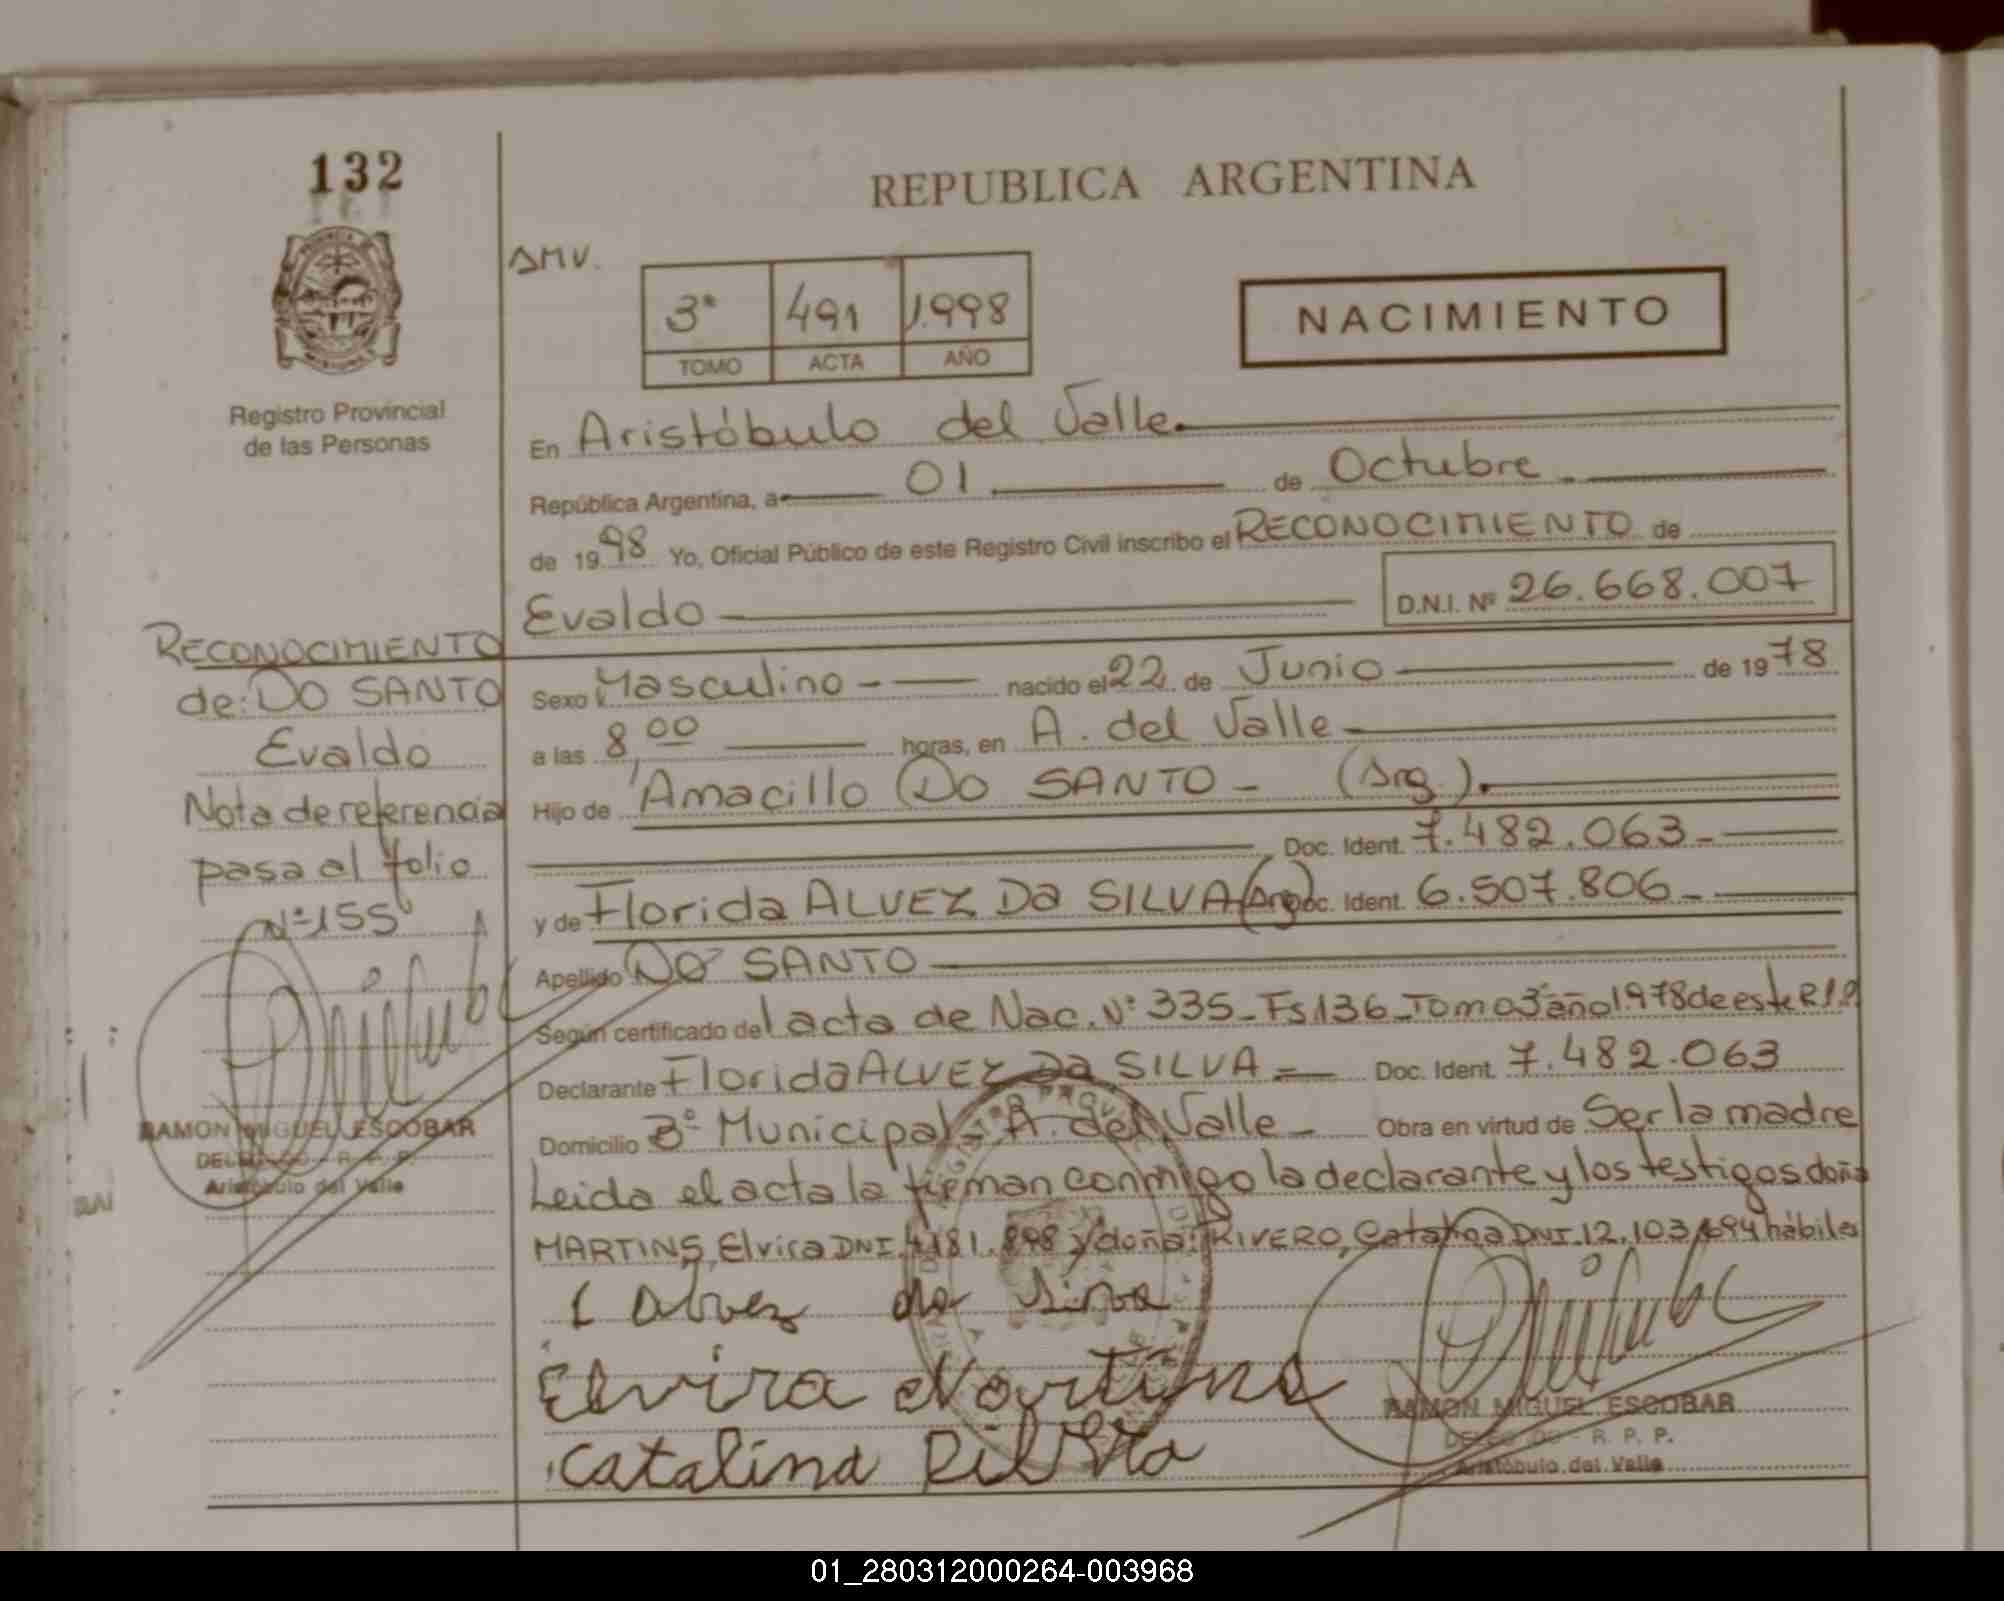 132
REPUBLICA ARGENTINA
SMV.
3° 491 1.998
TOMO ACTA AÑO
NACIMIENTO
Registro Provincial
de las Personas
En Aristóbulo del Valle.
República Argentina, a 01 de Octubre
de 1998 Yo, Oficial Público de este Registro Civil inscribo el RECONOCIMIENTO de
Evaldo D.N.I. Nº 26.668.007
RECONOCIMIENTO
de: DO SANTO
Evaldo
Nota de referencia
pasa al folio
N°155
RAMON MIGUEL ESCOBAR
DELEGADO R. P. P.
Aristóbulo del Valle
Sexo Masculino nacido el 22 de Junio de 1978
a las 8,00 horas, en A. del Valle
Hijo de Amacillo DO SANTO - (Arg.).
Doc. Ident. 7.482.063-
y de Florida ALVEZ DA SILVA (Arg) Doc. Ident. 6.507.806-
Apellido DO SANTO
Según certificado del acta de Nac. N° 335_Fs136_Tomo3°año1978 de este R.P.P
Declarante Florida ALVEZ DA SILVA = Doc. Ident. 7.482.063
Domicilio B° Municipal - A. del Valle - Obra en virtud de Ser la madre
Leida el acta la firman conmigo la declarante y los testigos doña
MARTINS, Elvira DNI. 4181.898 y doña: RIVERO, Catalina DNI.12.103.694 hábiles
Alvez da Silva
Elvira Martins
Catalina
RAMON MIGUEL ESCOBAR
DELEGADO R. P. P.
Aristóbulo del Valle
01_280312000264-003968